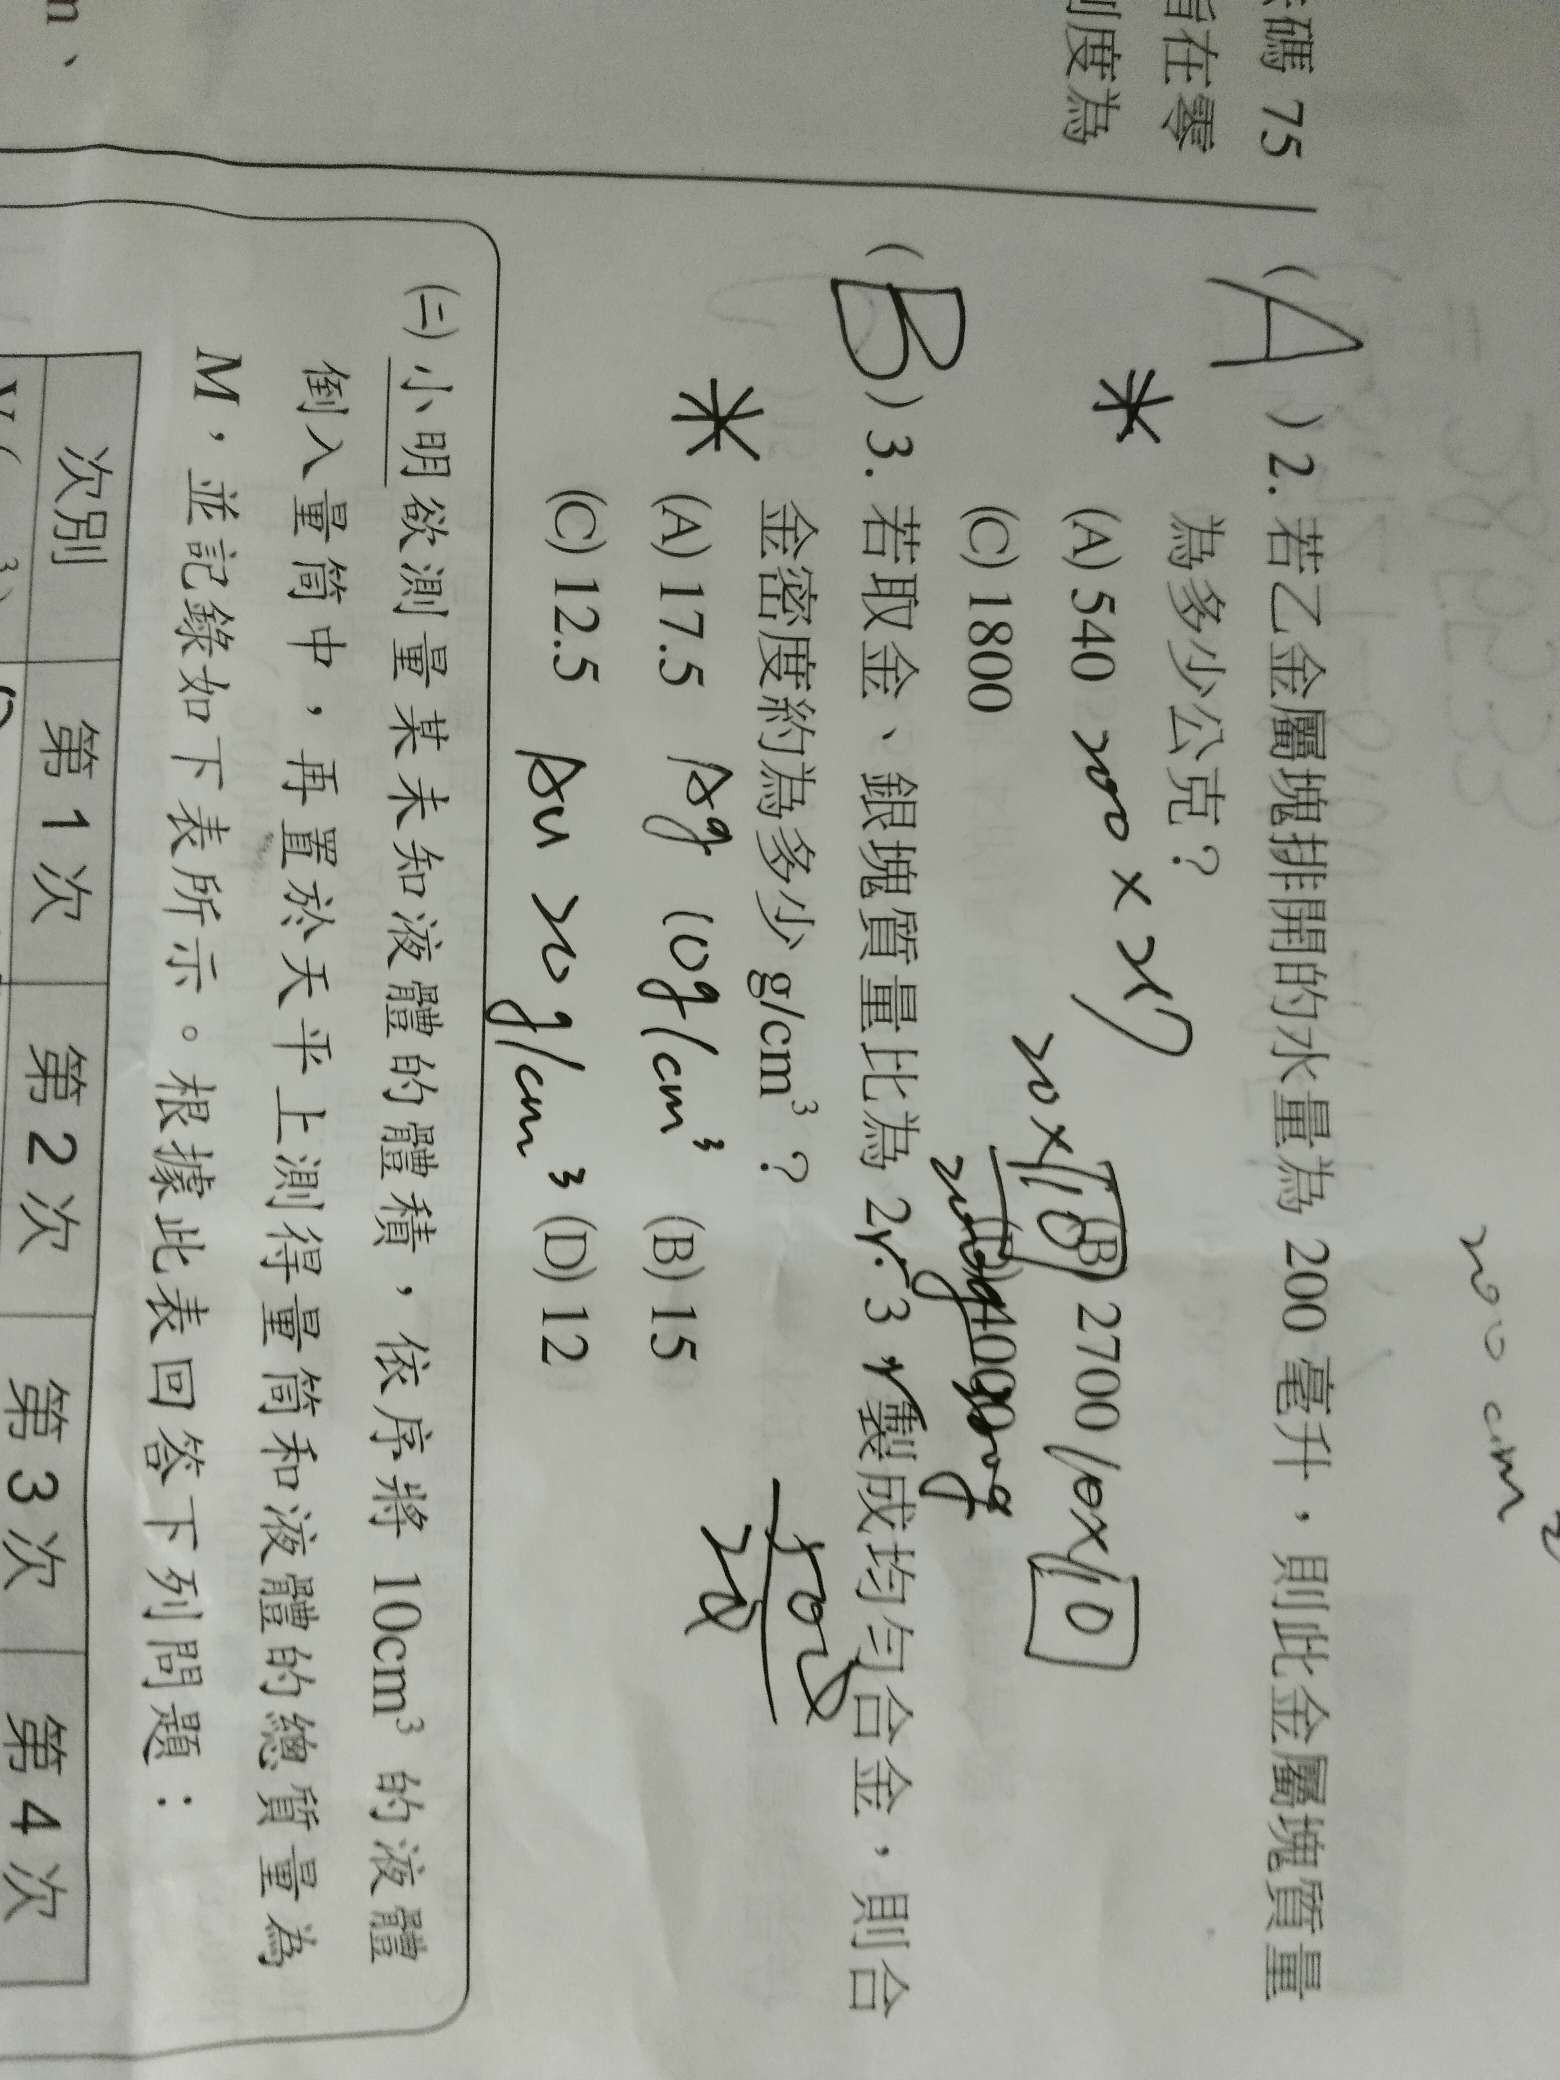 碼 75
在零
度為
200 cm
(A) 2. 若乙金屬塊排開的水量為 200 毫升，則此金屬塊質量
為多少公克？
* (A) 540 200 × 2.7 (B) 2700 10×10
20×10
(C) 1800 (D) 4000
200g 300g
(B) 3. 若取金、銀塊質量比為 2：3 製成均勻合金，則合
金密度約為多少 g/cm³？
* (A) 17.5 Ag 10g/cm³ (B) 15
(C) 12.5 Au 20g/cm³ (D) 12
(二) 小明欲測量某未知液體的體積，依序將 10cm³ 的液體
倒入量筒中，再置於天平上測得量筒和液體的總質量為
M，並記錄如下表所示。根據此表回答下列問題：
次別 第 1 次 第 2 次 第 3 次 第 4 次